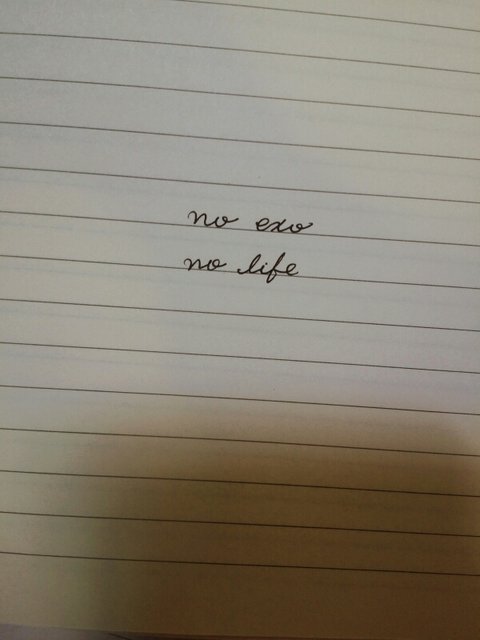 no exo
no life